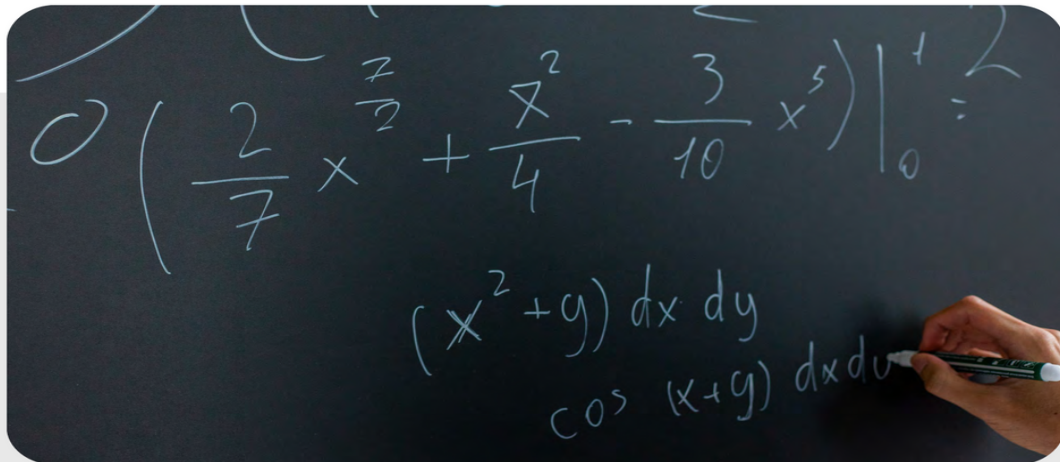 0 ( 2/7 x^7/2 + x^2/4 - 3/10 x^5 ) |_0^1 =
(x^2 + y) dx dy
cos (x+y) dx dy